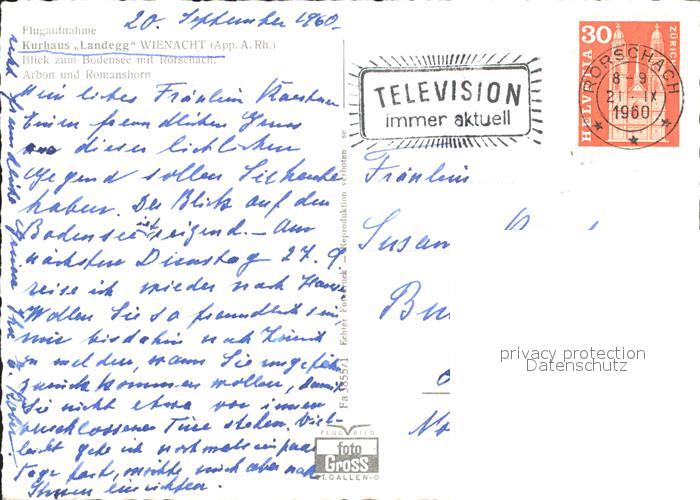 20. September 1960.
Flugaufnahme
Kurhaus „Landegg" WIENACHT (App. A. Rh.)
Blick zum Bodensee mit Rorschach,
Arbon und Romanshorn
Mein liebes Fräulein
Einen freundlichen Gruss
aus dieser lieblichen
Gegend sollen Sie heute
haben. Der Blick auf den
Bodensee ist reizend. – Am
nächsten Dienstag 27. 9.
reise ich wieder nach Hause
Wollen Sie so freundlich sein
mir bis dahin nach
zu melden, wann Sie ungefähr
zurück kommen wollen, damit
Sie nicht etwa vor einer
verschlossenen Türe stehen. Viel-
leicht gehe ich nochmals ein paar
Tage fort, möchte mich aber nach
Ihnen einrichten.
Fa 3855/1 Echter Fotodruck - Reproduktion verboten
TELEVISION
immer aktuell
HELVETIA 30 ZÜRICH
RORSCHACH
8-9
21. IX
1960
Fräulein
Susan
privacy protection
Datenschutz
FLUGBILD
foto
Gross
ST.GALLEN-O